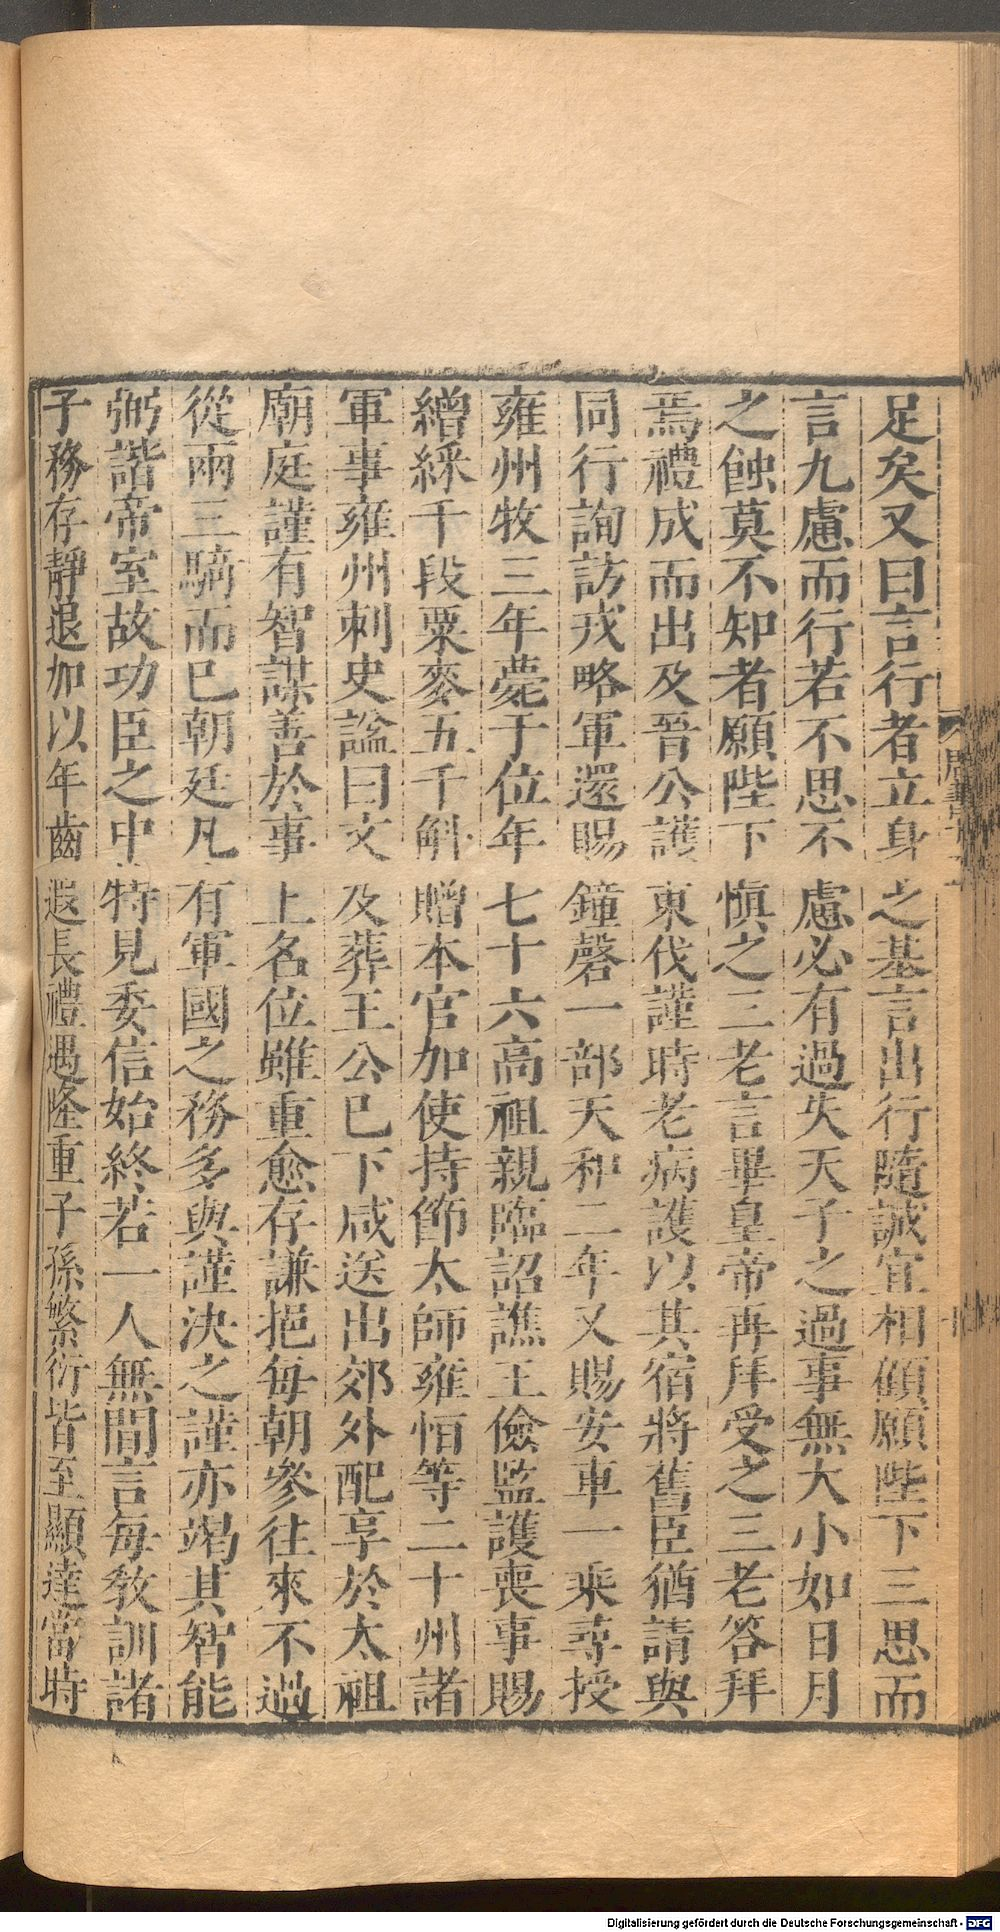 足矣又曰言行者立身之基言出行隨誠宜相顧願陛下三思而
言九慮而行若不思不慮必有過失天子之過事無大小如日月
之蝕莫不知者願陛下愼之三老言畢皇帝再拜受之三老答拜
焉禮成而出及晉公護東伐謹時老病護以其宿將舊臣猶請與
同行詢訪戎略軍還賜鐘磬一部天和二年又賜安車一乘尋授
雍州牧三年薨于位年七十六高祖親臨詔譙王儉監護喪事賜
繒綵千段粟麥五千斛贈本官加使持節太師雍恒等二十州諸
軍事雍州刺史謚曰文及葬王公已下咸送出郊外配享於太祖
廟庭謹有智謀善於事上名位雖重愈存謙挹每朝參往來不過
從兩三騎而已朝廷凡有軍國之務多與謹決之謹亦竭其智能
弼諧帝室故功臣之中特見委信始終若一人無間言每敎訓諸
子務存靜退加以年齒遐長禮遇隆重子孫繁衍皆至顯達當時
Digitalisierung gefördert durch die Deutsche Forschungsgemeinschaft - DFG